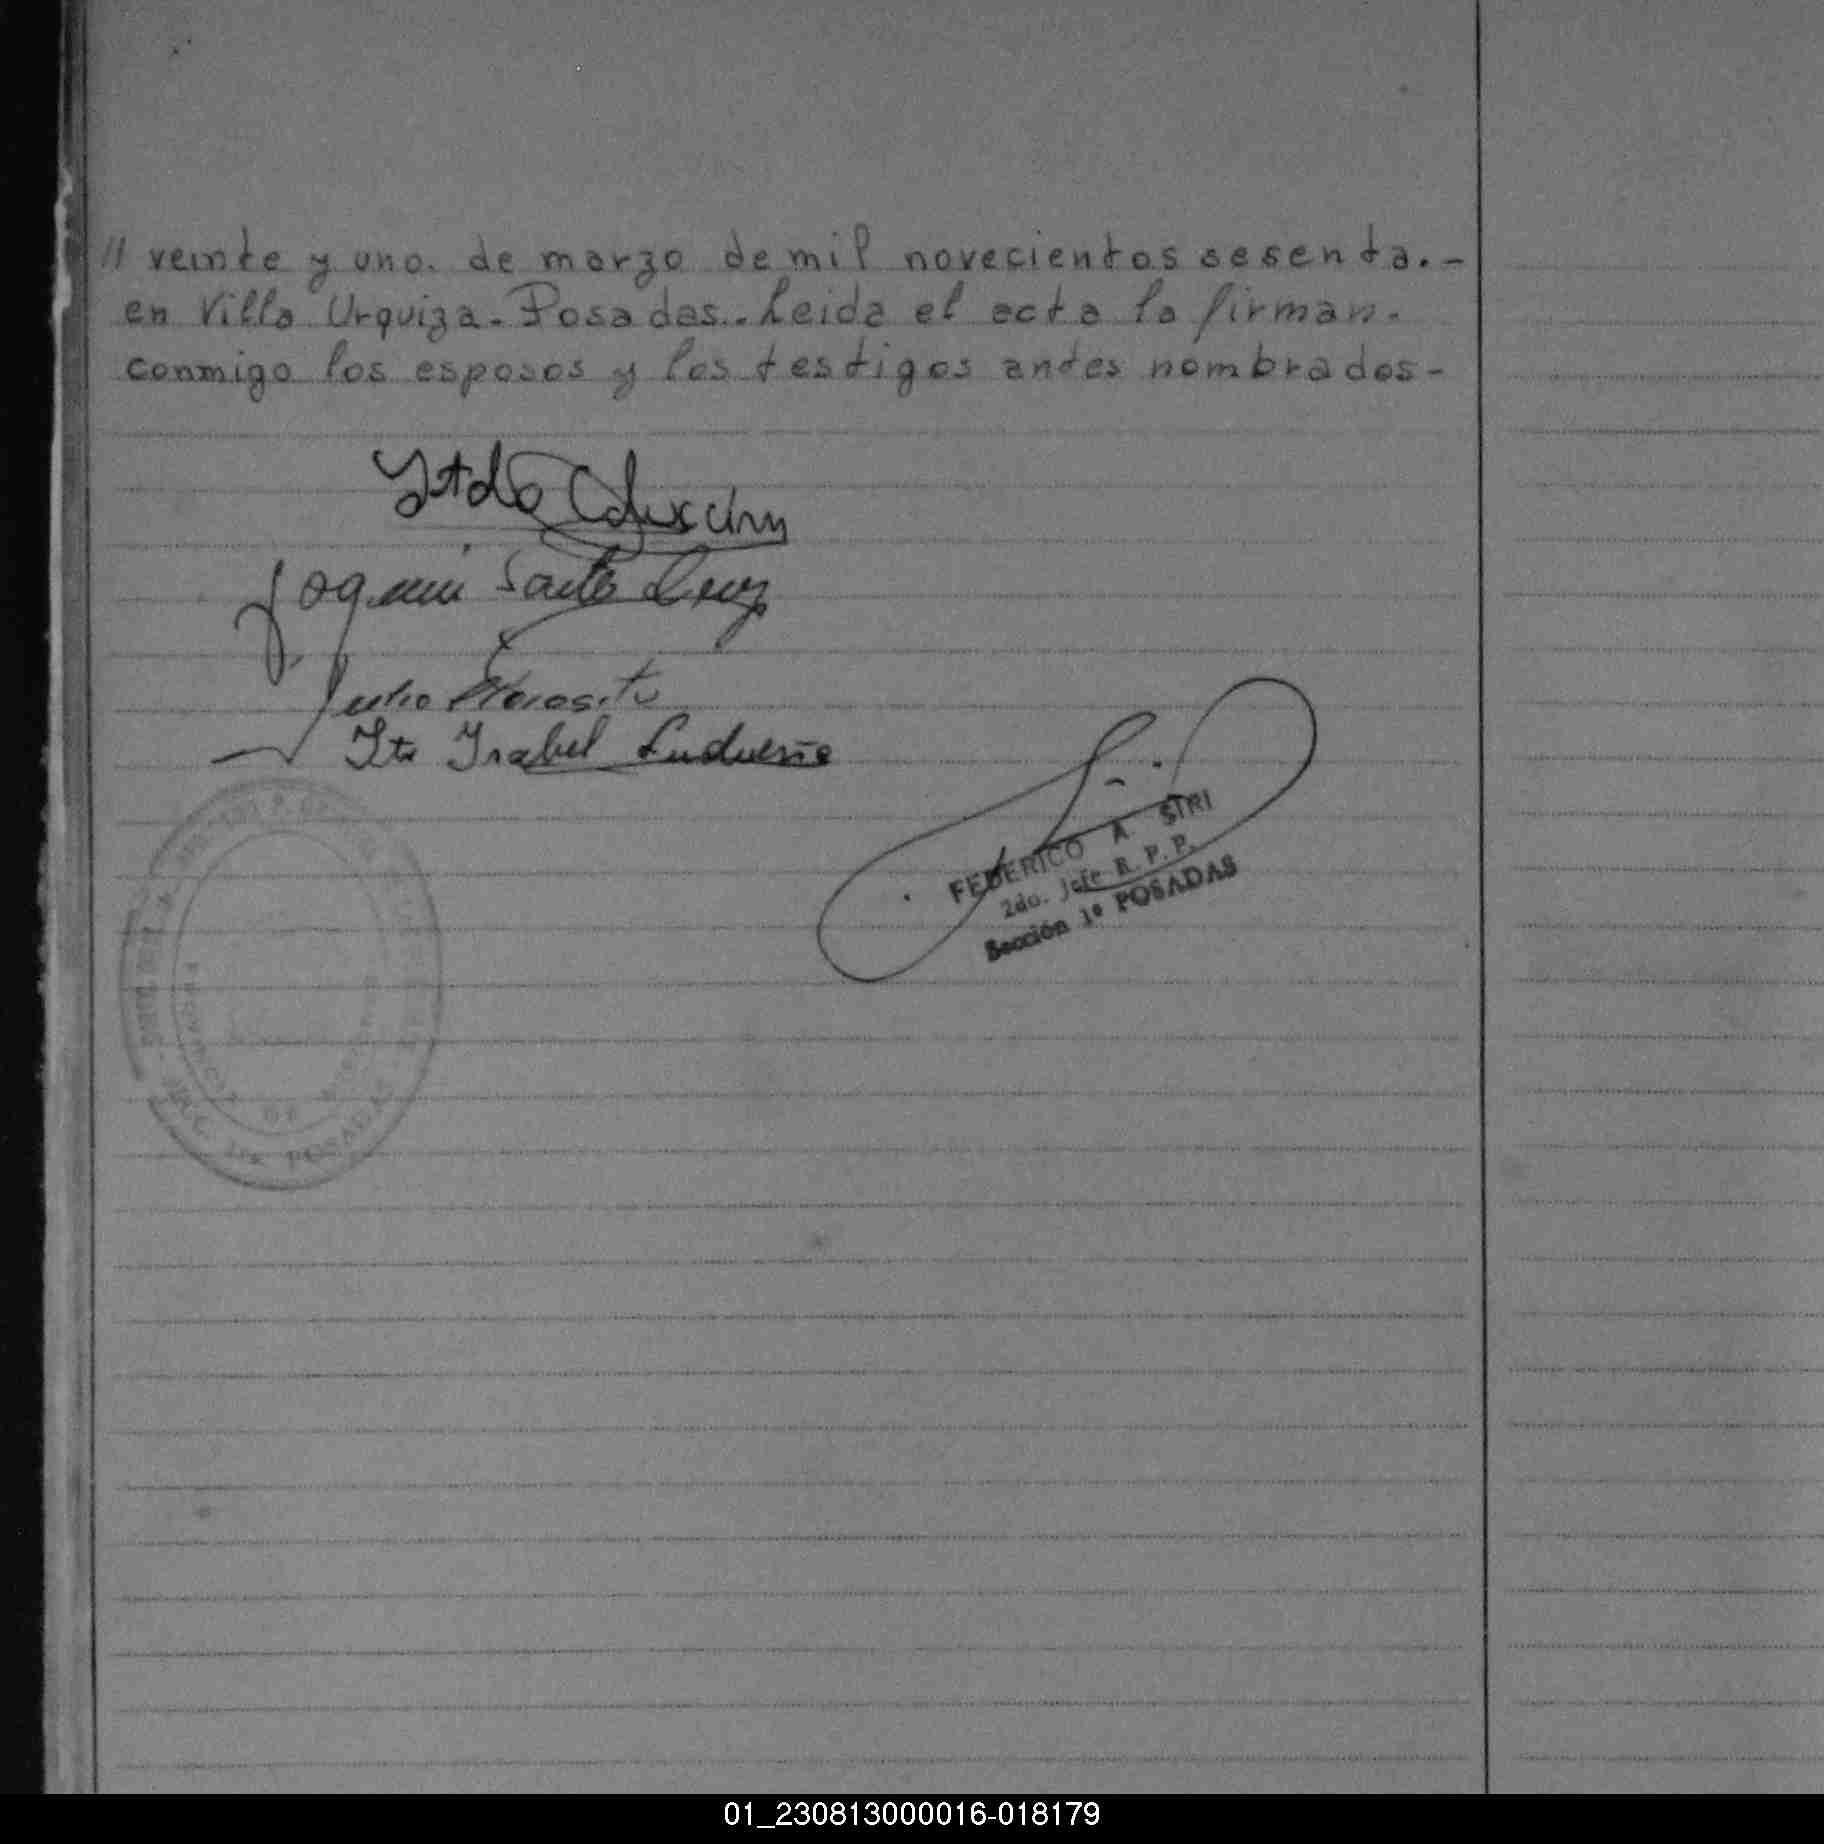 // veinte y uno. de marzo de mil novecientos sesenta.-
en Villa Urquiza-Posadas.. Leida el acta la firman.
conmigo los esposos y los testigos antes nombrados-
Joaquin Santa Cruz
Julio
Isabel Ludueña
FEDERICO A STRI
2do. Jefe R. P. P.
Sección 1ª POSADAS
PROVINCIA DE MISIONES
POSADAS
01_230813000016-018179